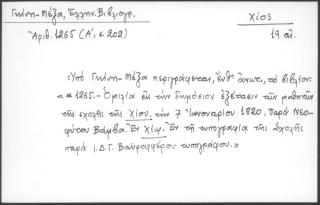 Γκίνη-Μέξα, Ἑλλην. Βιβλιογρ.
Χίος
Ἀριθ. 1265 (Α', σ. 202)
19 αἰ.
Ὑπὸ Γκίνη-Μέξα περιγράφεται, ἔνθ' ἄνωτ., τὸ βιβλίον:
« * 1265.- Ὁμιλία εἰς τὴν δημόσιον ἐξέτασιν τῶν μαθητῶν
τῆς σχολῆς τῆς Χίου, τὴν 7 Ἰανουαρίου 1820, παρὰ Νεο-
φύτου Βάμβα. Ἐν Χίῳ. Ἐν τῇ τυπογραφίᾳ τῆς Σχολῆς
παρὰ Ἰ.Δ.Γ. Βαϋροφφέρου τυπογράφου.»